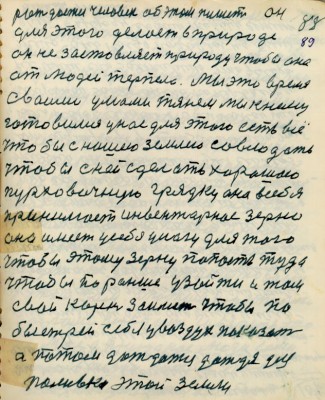 рождожи человек об этом пишет он 88
для этого делает в природе 89
он не заставляет природу чтобы она
от людей терпела. Мы это время
своими умами тянем мы к нему
готовимся у нас для этого есть всё
чтобы с нашею землею совлодать
чтобы с ней сделать хорошею
пурховичную грядку она в себя
принимает инвентарное зерно
она имеет у себя влагу для того
чтобы этому зерну попасть туда
чтобы пораньше взойти и там
свой корен занять чтобы по
быстрей себя в воздух показать
а потом дождать дождя для
поливки этой земли